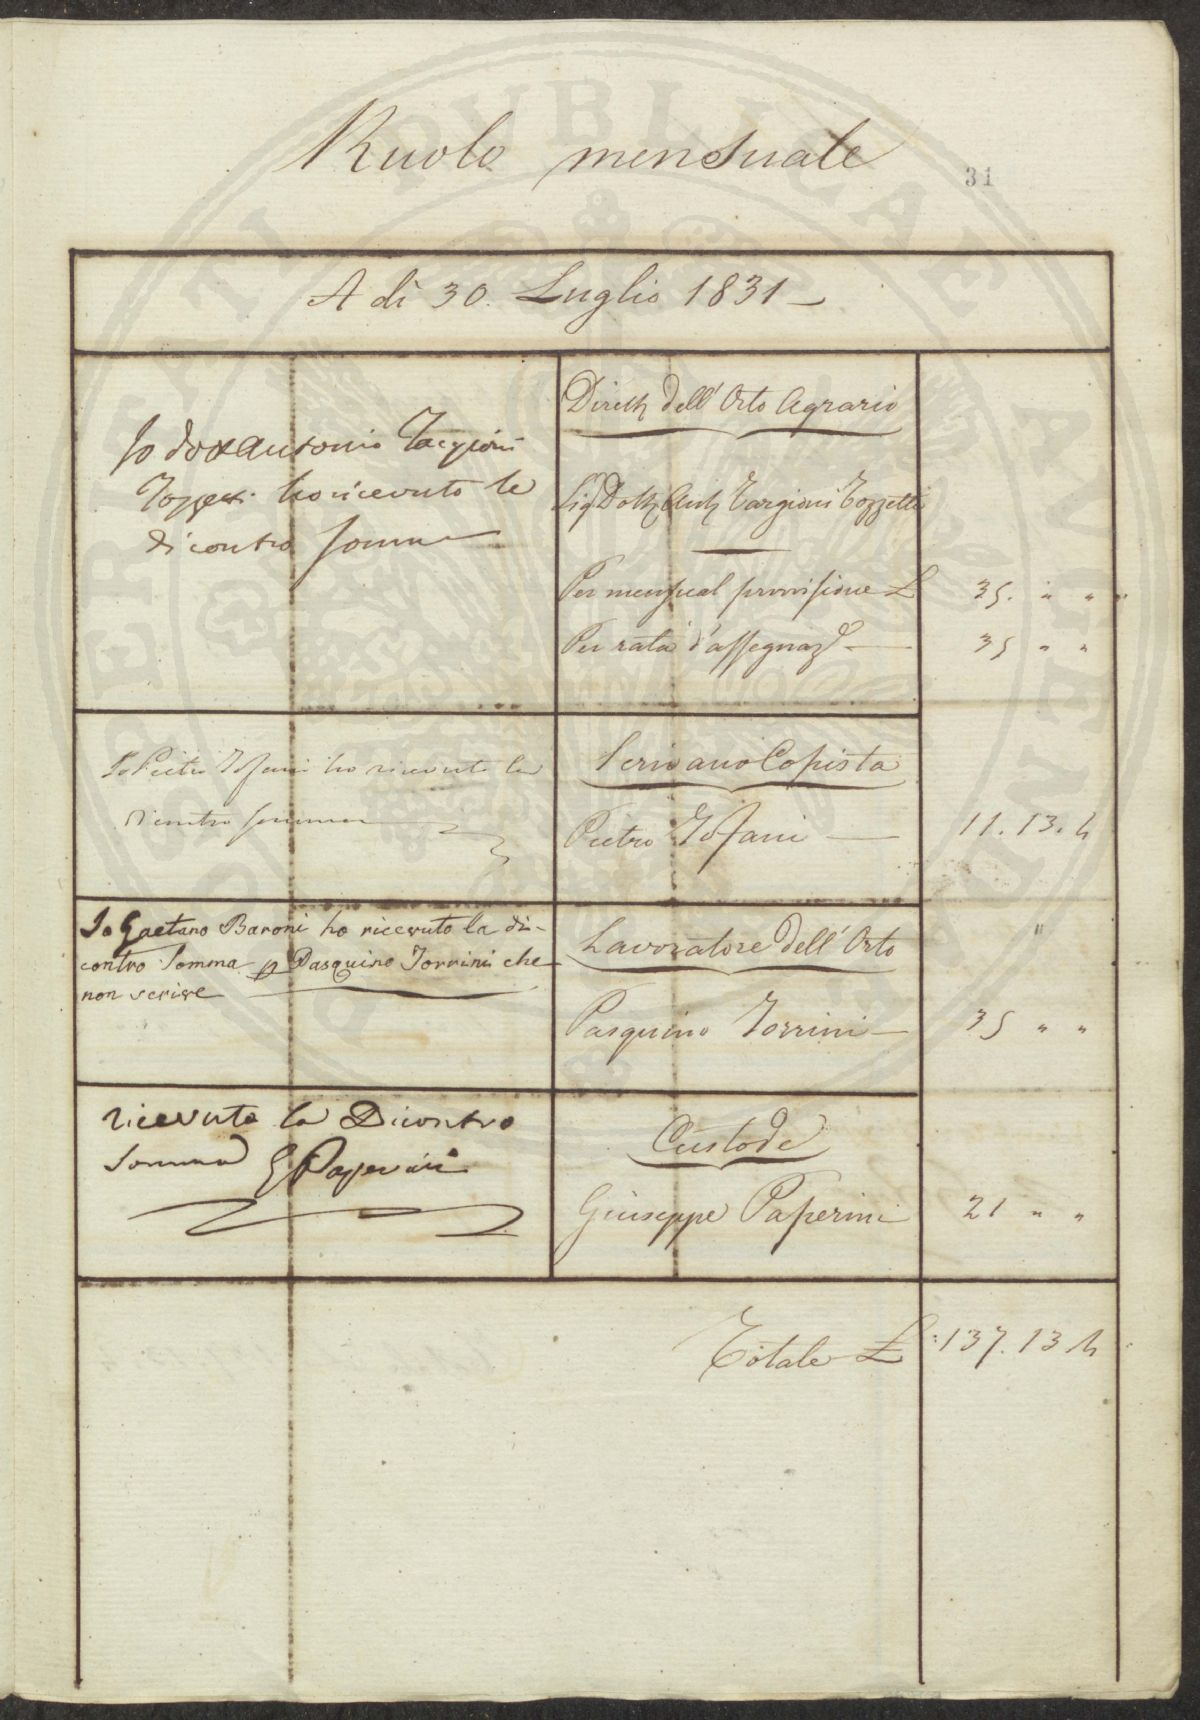 Ruolo mensuale
31
A dì 30. Luglio 1831 –
Io Dott Antonio Targioni
Tozzetti ho ricevuto le
di contro somme
Dirett dell' Orto Agrario
Sig Dott Ant Targioni Tozzetti
Per mensual provvisione £ 35. " "
Per rata d'assegnaz.e — 35 " "
Io Pietro Tofani ho ricevuto la
dicontro somma
Scrivano Copista
Pietro Tofani — 11. 13. 4
Io Gaetano Baroni ho ricevuto la di-
contro Somma p Pasquino Torrini che
non scrive
Lavoratore dell' Orto
"
Pasquino Torrini — 35 " "
ricevuto la Dicontro
Somma G Paperini
Custode
Giuseppe Paperini 21 " "
Totale £: 137. 13 4
PERGATI PVBLICAE